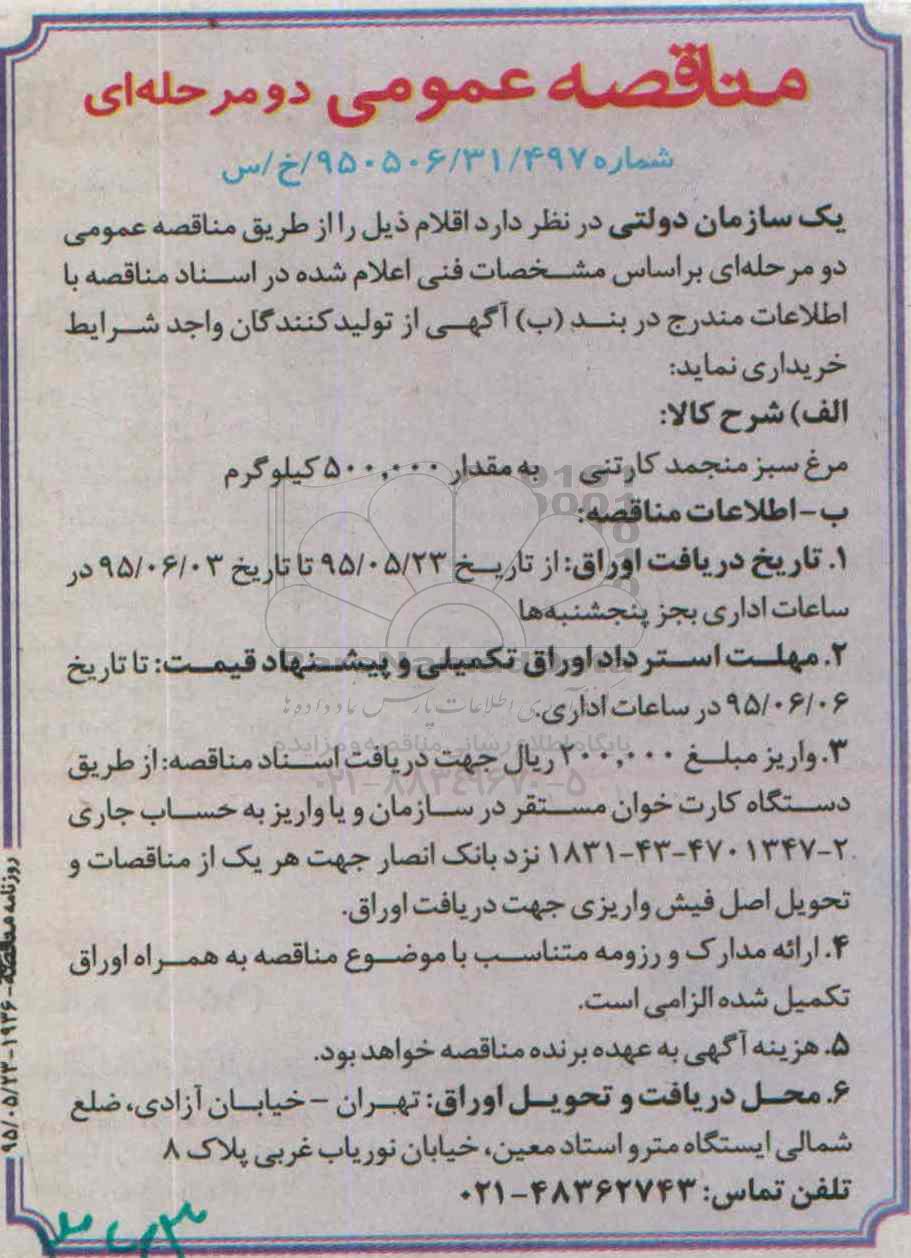 مناقصه عمومی دو مرحله‌ای
شماره ۹۵۰۵۰۶/۳۱/۴۹۷/خ/س
یک سازمان دولتی در نظر دارد اقلام ذیل را از طریق مناقصه عمومی
دو مرحله‌ای براساس مشخصات فنی اعلام شده در اسناد مناقصه با
اطلاعات مندرج در بند (ب) آگهی از تولیدکنندگان واجد شرایط
خریداری نماید:
الف) شرح کالا:
مرغ سبز منجمد کارتنی به مقدار ۵۰۰,۰۰۰ کیلوگرم
ب-اطلاعات مناقصه:
۱. تاریخ دریافت اوراق: از تاریخ ۹۵/۰۵/۲۳ تا تاریخ ۹۵/۰۶/۰۳ در
ساعات اداری بجز پنجشنبه‌ها
۲. مهلت استرداد اوراق تکمیلی و پیشنهاد قیمت: تا تاریخ
۹۵/۰۶/۰۶ در ساعات اداری.
پایگاه اطلاع رسانی مناقصه و مزایده
۳. واریز مبلغ ۲۰۰,۰۰۰ ریال جهت دریافت اسناد مناقصه: از طریق
۰۲۱-۸۸۳۴۹۶۷۰-۵
دستگاه کارت خوان مستقر در سازمان و یا واریز به حساب جاری
۱۸۳۱-۴۳-۴۷۰۱۳۴۷-۲ نزد بانک انصار جهت هر یک از مناقصات و
تحویل اصل فیش واریزی جهت دریافت اوراق.
۴. ارائه مدارک و رزومه متناسب با موضوع مناقصه به همراه اوراق
تکمیل شده الزامی است.
۵. هزینه آگهی به عهده برنده مناقصه خواهد بود.
۶. محل دریافت و تحویل اوراق: تهران - خیابان آزادی، ضلع
شمالی ایستگاه مترو استاد معین، خیابان نوریاب غربی پلاک ۸
تلفن تماس: ۴۸۳۶۲۷۴۳-۰۲۱
روزنامه مناقصه-۱۹۳۶-۹۵/۰۵/۲۳